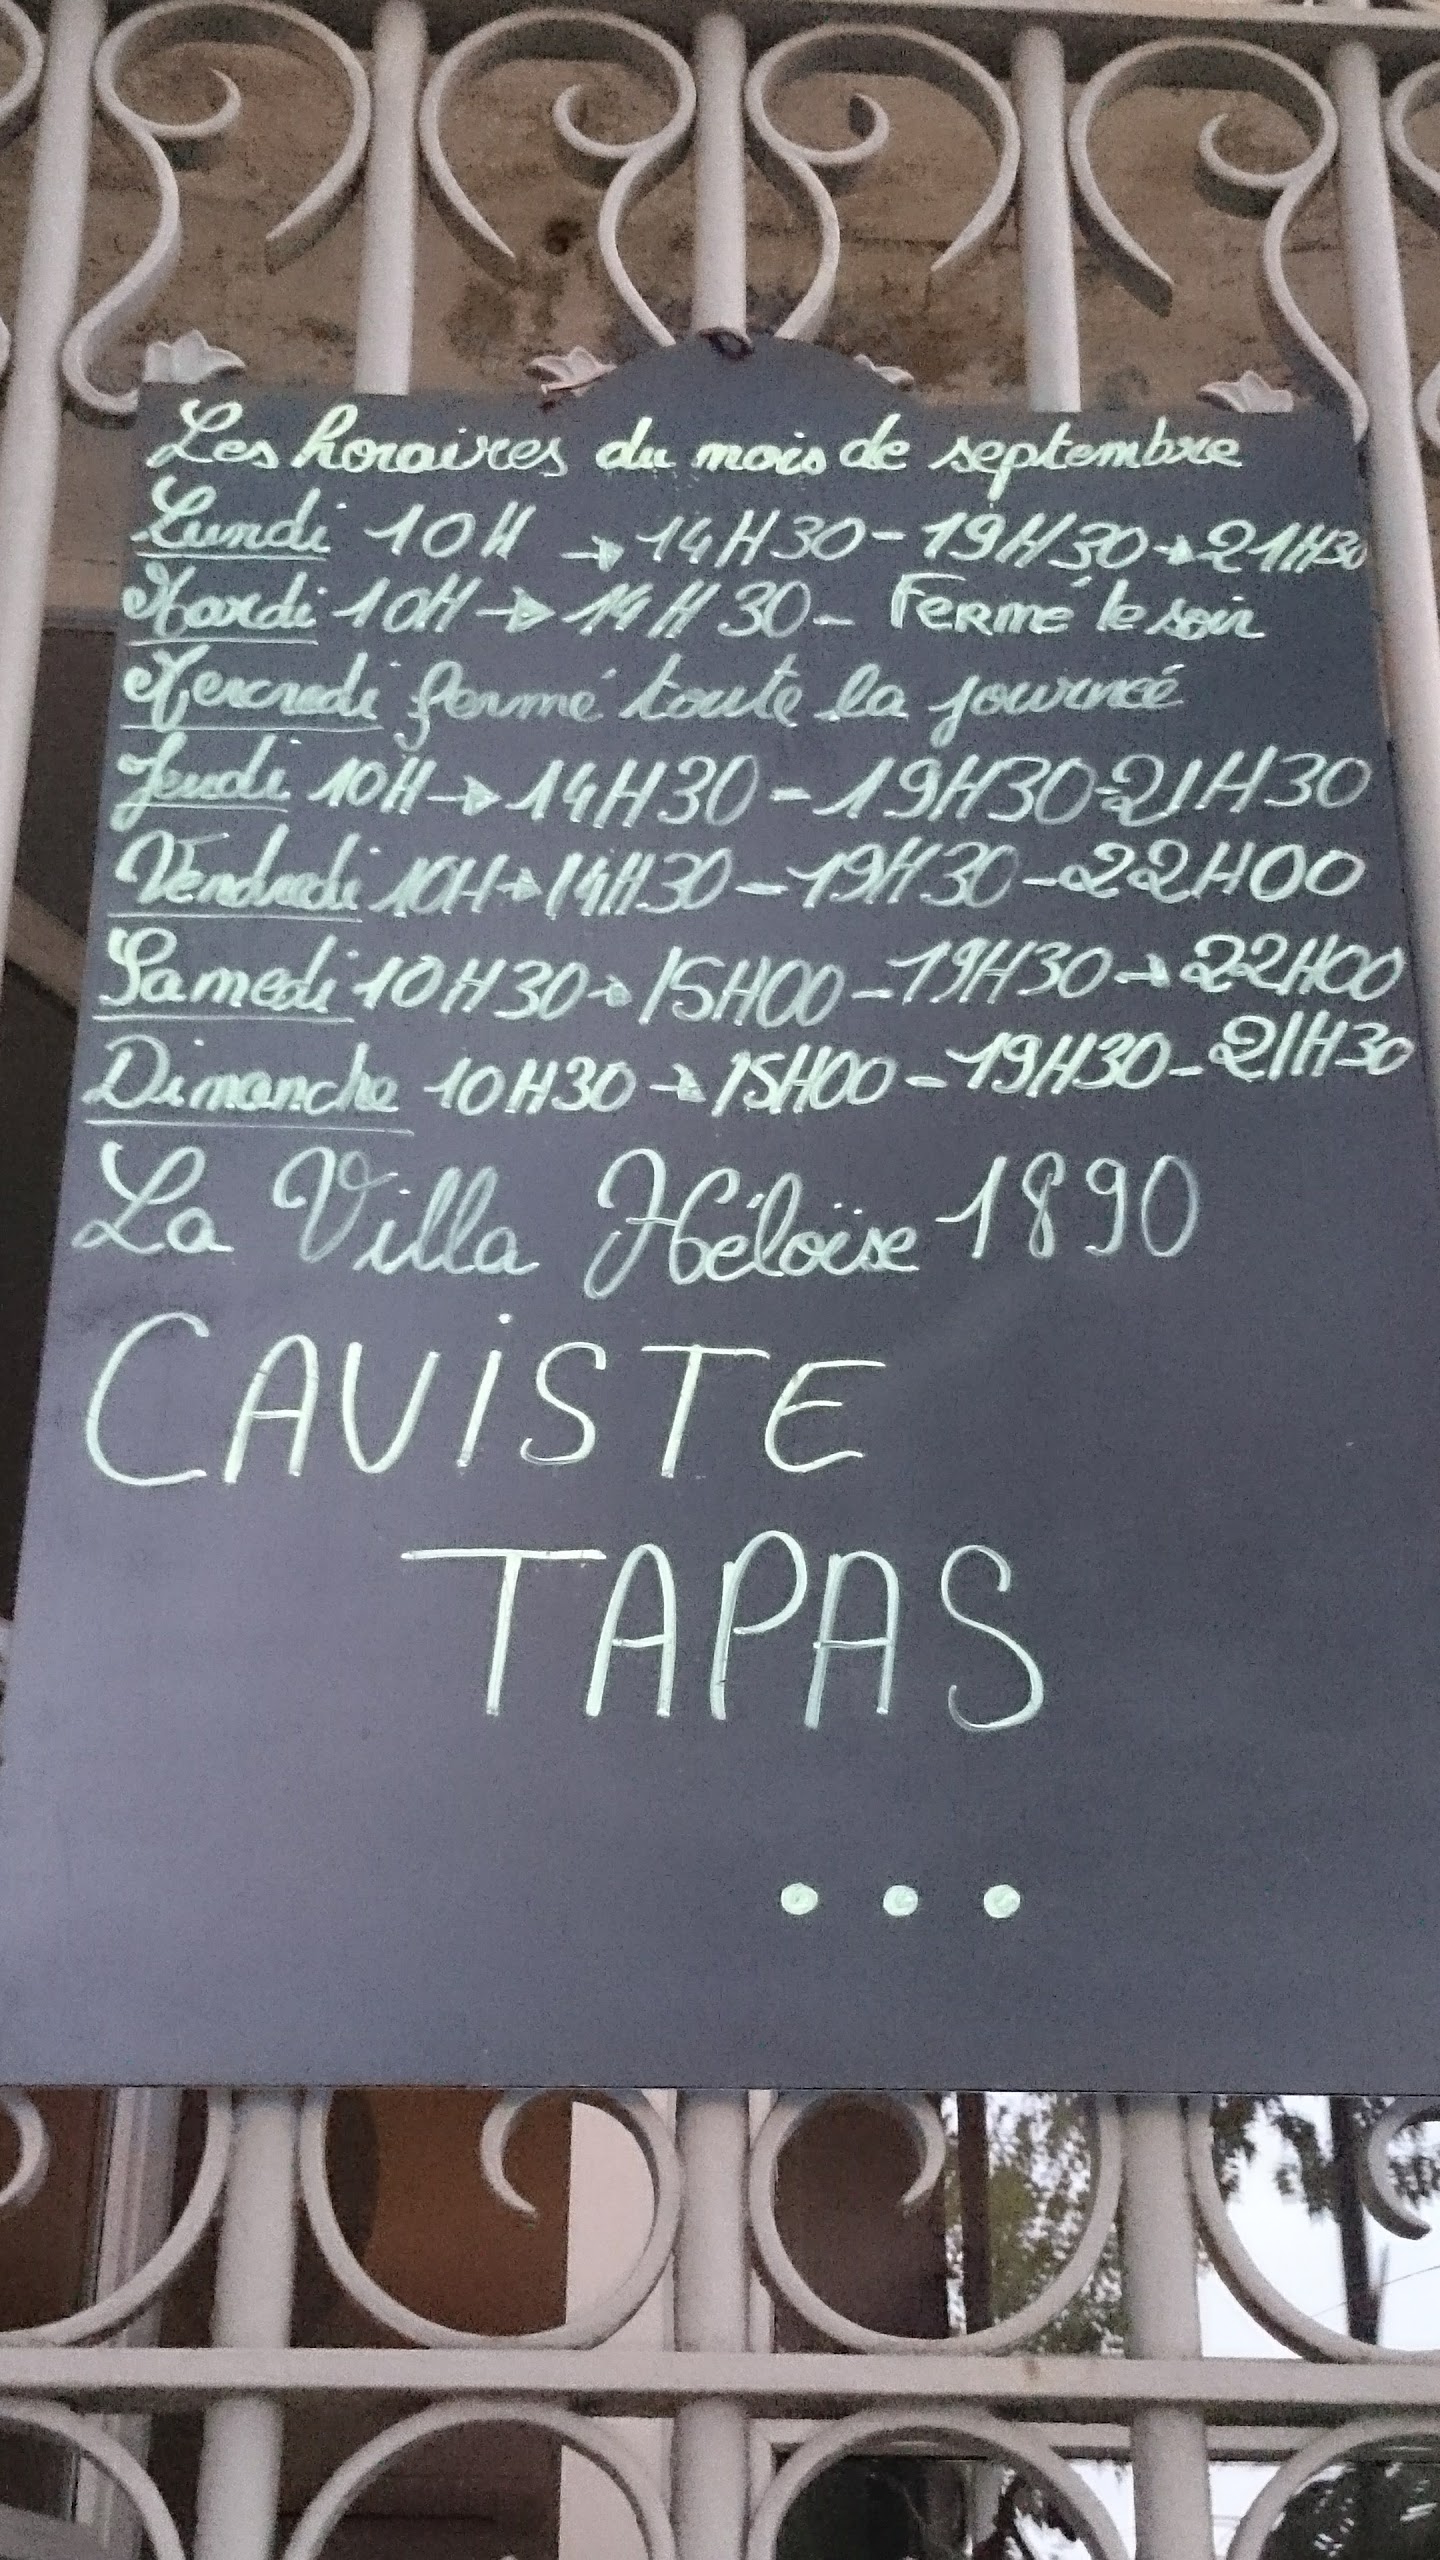 Les horaires du mois de septembre
Lundi 10H → 14H30 - 19H30 → 21H30
Mardi 10H → 14H30 - Fermé le soir
Mercredi fermé toute la journeé
Jeudi 10H → 14H30 - 19H30 - 21H30
Vendredi 10H → 14H30 - 19H30 - 22H00
Samedi 10H30 → 15H00 - 19H30 → 22H00
Dimanche 10H30 → 15H00 - 19H30 - 21H30
La Villa Héloïse 1890
CAViSTE
TAPAS
...